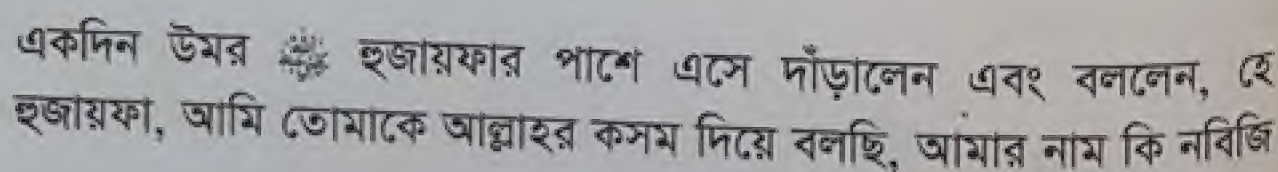 একদিন উমর ﷺ হুজায়ফার পাশে এসে দাঁড়ালেন এবং বললেন, হে
হুজায়ফা, আমি তোমাকে আল্লাহর কসম দিয়ে বলছি, আমার নাম কি নবিজি